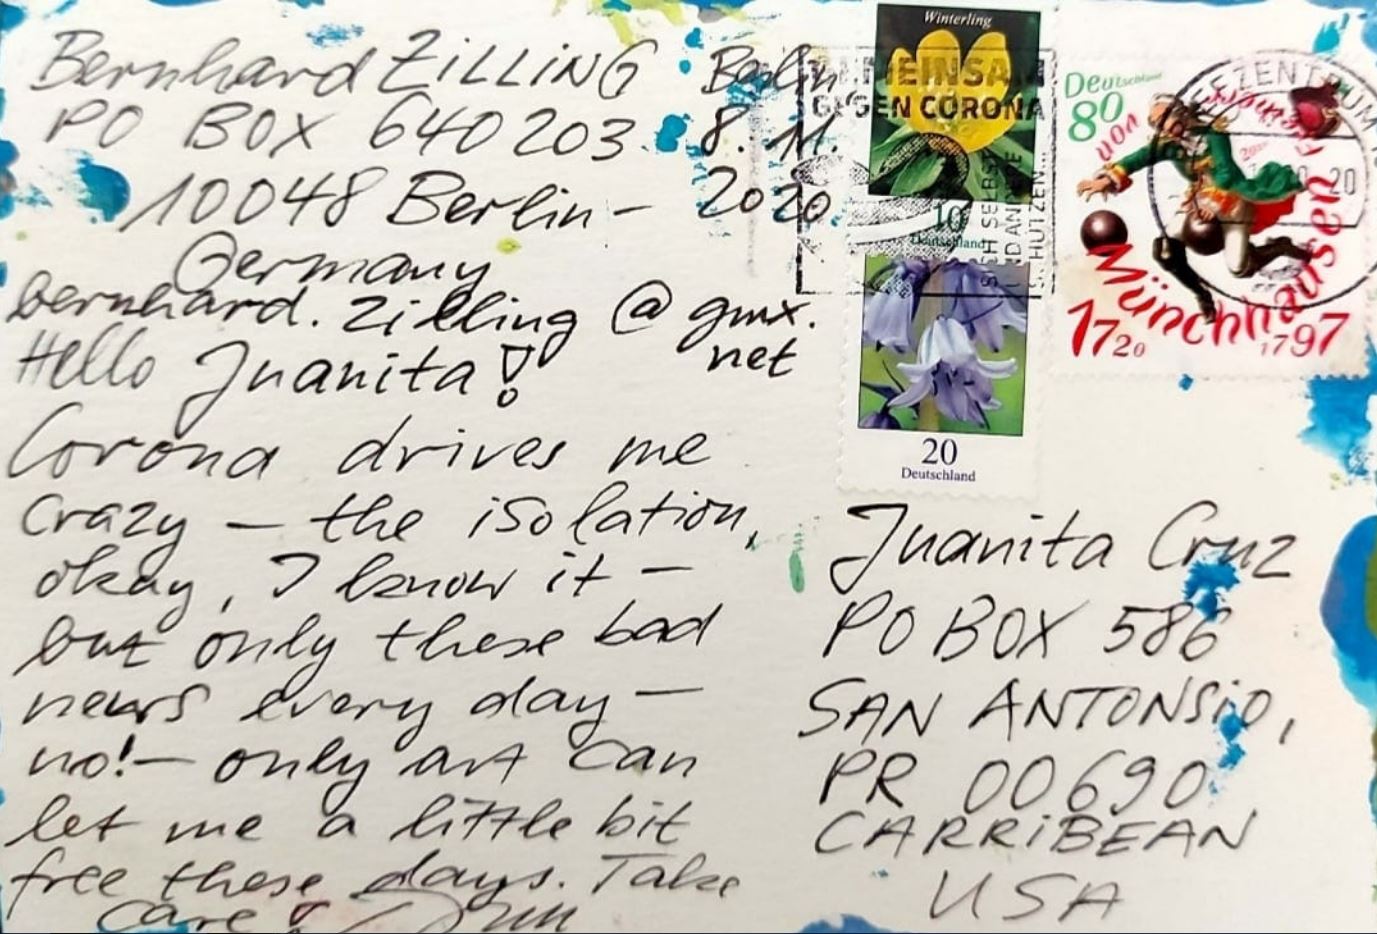 Bernhard ZILLING
PO BOX 640 203
10048 Berlin-
Germany
Berlin
8. 11.
2020
bernhard.zilling @ gmx.
net
Hello Juanita!
Corona drives me
crazy — the isolation,
okay, I know it —
but only these bad
news every day —
no! — only art can
let me a little bit
free these days. Take
care!
Winterling
10
Deutschland
20
Deutschland
GEMEINSAM
GEGEN CORONA
SICH SELBST
UND ANDERE
SCHÜTZEN...
Deutschland
80
Freiherr
von
Münchhausen
1720
1797
2020
BRIEFZENTRUM
20
Juanita Cruz
PO BOX 586
SAN ANTONSiO,
PR 00690
CARRiBEAN
USA